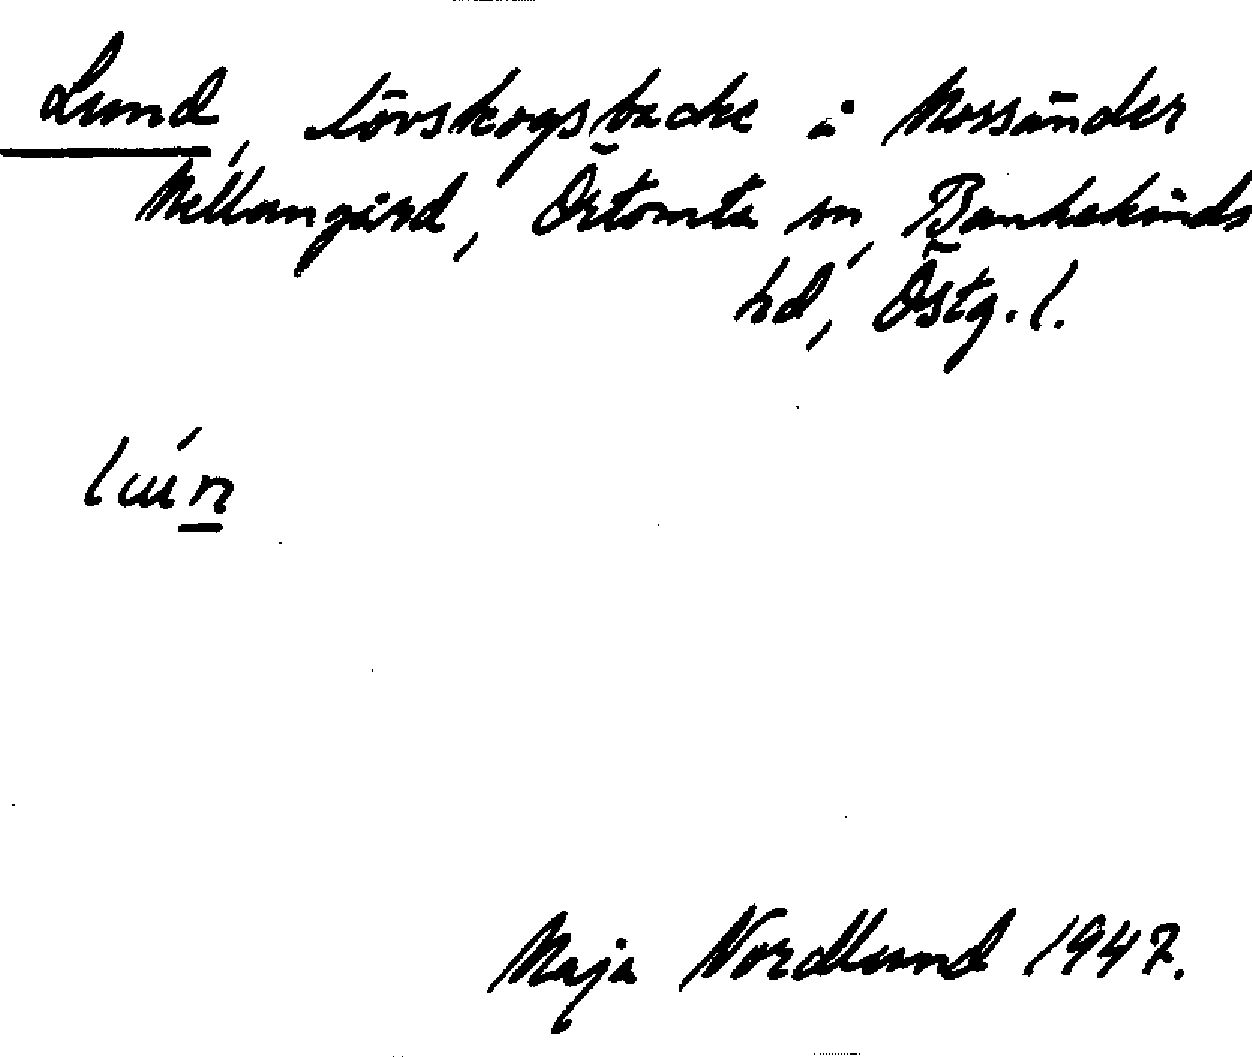 Lund, lövskogsbacke å Mossänder
Mellangård, Örtomta sn, Bankekinds
hd, Östg. l.
luún
Maja Nordlund 1947.